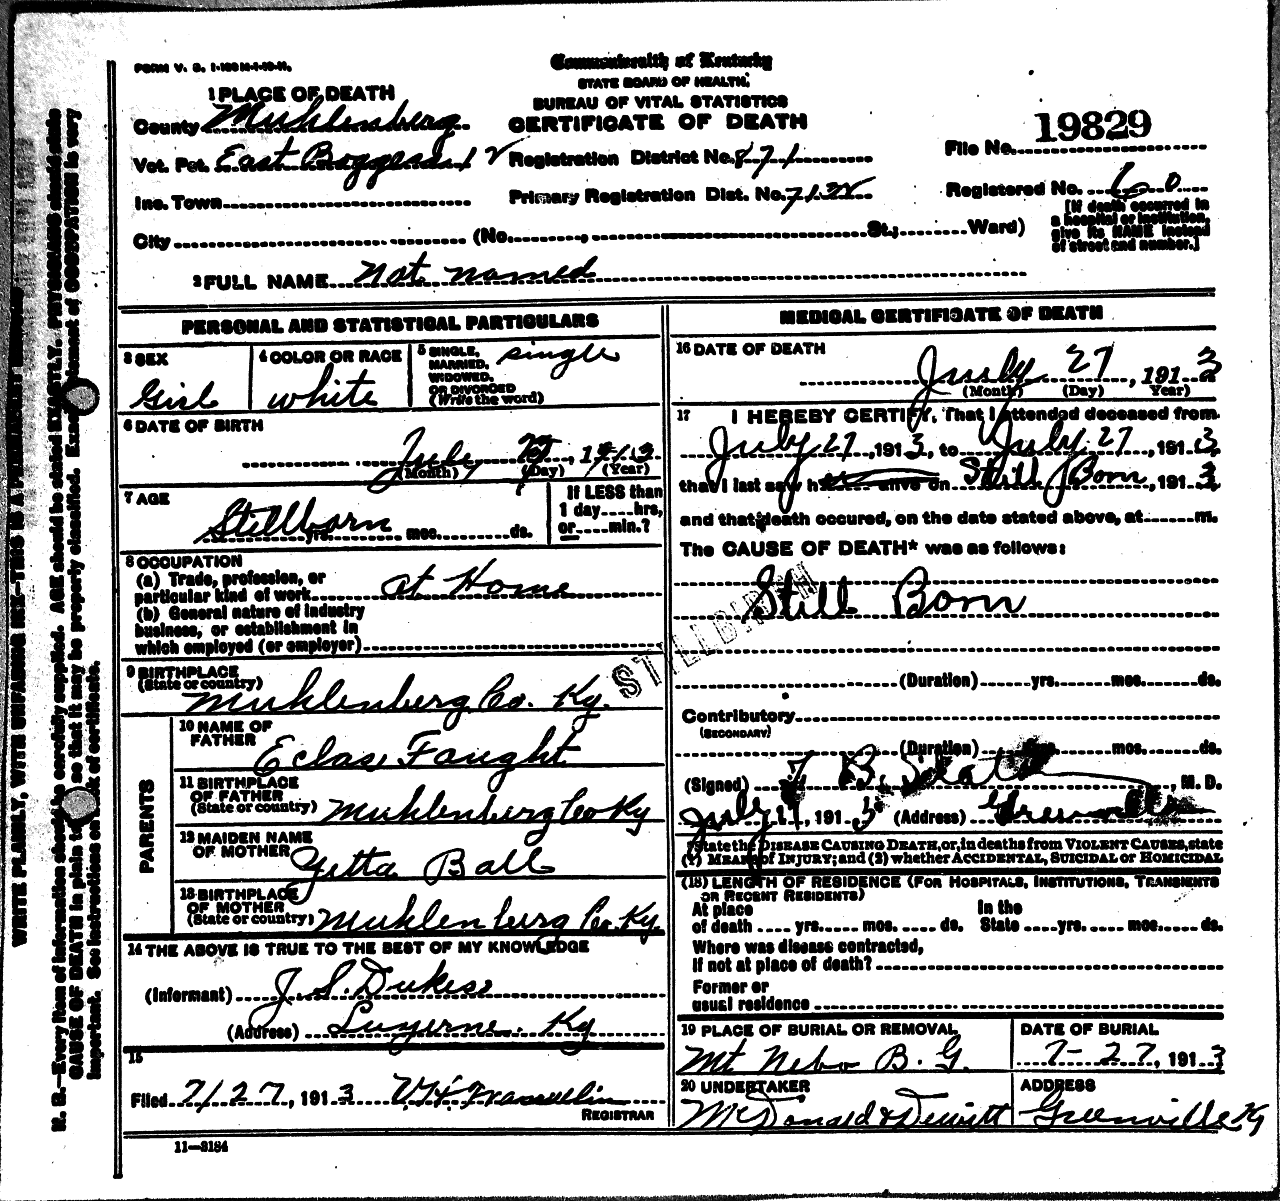 FORM V. S. 1-
Commonwealth of Kentucky
STATE BOARD OF HEALTH.
BUREAU OF VITAL STATISTICS
CERTIFICATE OF DEATH
1 PLACE OF DEATH
County Muhlenberg
Vot. Pct. East Boggess 1 Registration District No. 871
File No. 19829
Inc. Town Primary Registration Dist. No. 7132
Registered No. 60
City (No. , St.; Ward)
[If death occurred in
a hospital or institution,
give its NAME instead
of street and number.]
2 FULL NAME Not named
PERSONAL AND STATISTICAL PARTICULARS
3 SEX
Girl
4 COLOR OR RACE
white
5 SINGLE,
MARRIED,
WIDOWED
OR DIVORCED
(Write the word)
single
6 DATE OF BIRTH
July 27, 1913
(Month) (Day) (Year)
7 AGE
Stillborn
yrs. mos. ds.
If LESS than
1 day hrs,
or min.?
8 OCCUPATION
(a) Trade, profession, or
particular kind of work at Home
(b) General nature of industry
business, or establishment in
which employed (or employer)
9 BIRTHPLACE
(State or country)
Muhlenberg Co. Ky.
PARENTS
10 NAME OF
FATHER
Eclas Faught
11 BIRTHPLACE
OF FATHER
(State or country) Muhlenberg Co Ky
12 MAIDEN NAME
OF MOTHER
Yetta Ball
13 BIRTHPLACE
OF MOTHER
(State or country) Muhlenberg Co. Ky.
14 THE ABOVE IS TRUE TO THE BEST OF MY KNOWLEDGE
(Informant) J. S. Dukes
(Address) Luzerne. Ky
15
Filed 7/27, 1913
REGISTRAR
11-3184
MEDICAL CERTIFICATE OF DEATH
16 DATE OF DEATH
July 27, 1913
(Month) (Day) Year)
17 I HEREBY CERTIFY, That I attended deceased from
July 27, 1913, to July 27, 1913
that I last saw h alive on Still Born, 1913
and that death occured, on the date stated above, at m.
The CAUSE OF DEATH* was as follows:
Still Born
STILLBIRTH
(Duration) yrs. mos. ds.
Contributory
(SECONDARY)
(Duration) yrs. mos. ds.
(Signed) B. , M. D.
July , 1913 (Address) Greenville
*State the DISEASE CAUSING DEATH, or, in deaths from VIOLENT CAUSES, state
(1) MEANS of INJURY; and (2) whether ACCIDENTAL, SUICIDAL or HOMICIDAL
(18) LENGTH OF RESIDENCE (FOR HOSPITALS, INSTITUTIONS, TRANSIENTS
OR RECENT RESIDENTS)
At place In the
of death yrs. mos. ds. State yrs. mos. ds.
Where was disease contracted,
If not at place of death?
Former or
usual residence
19 PLACE OF BURIAL OR REMOVAL
Mt Nebo B. G.
DATE OF BURIAL
7-27, 1913
20 UNDERTAKER
McDonald & Dewitt
ADDRESS
Greenville Ky
WRITE PLAINLY, WITH UNFADING INK—THIS IS A PERMANENT RECORD
N. B.—Every item of information should be carefully supplied. AGE should be stated EXACTLY. PHYSICIANS should state
CAUSE OF DEATH in plain so that it may be properly classified. Exact statement of OCCUPATION is very
important. See instructions on back of certificate.